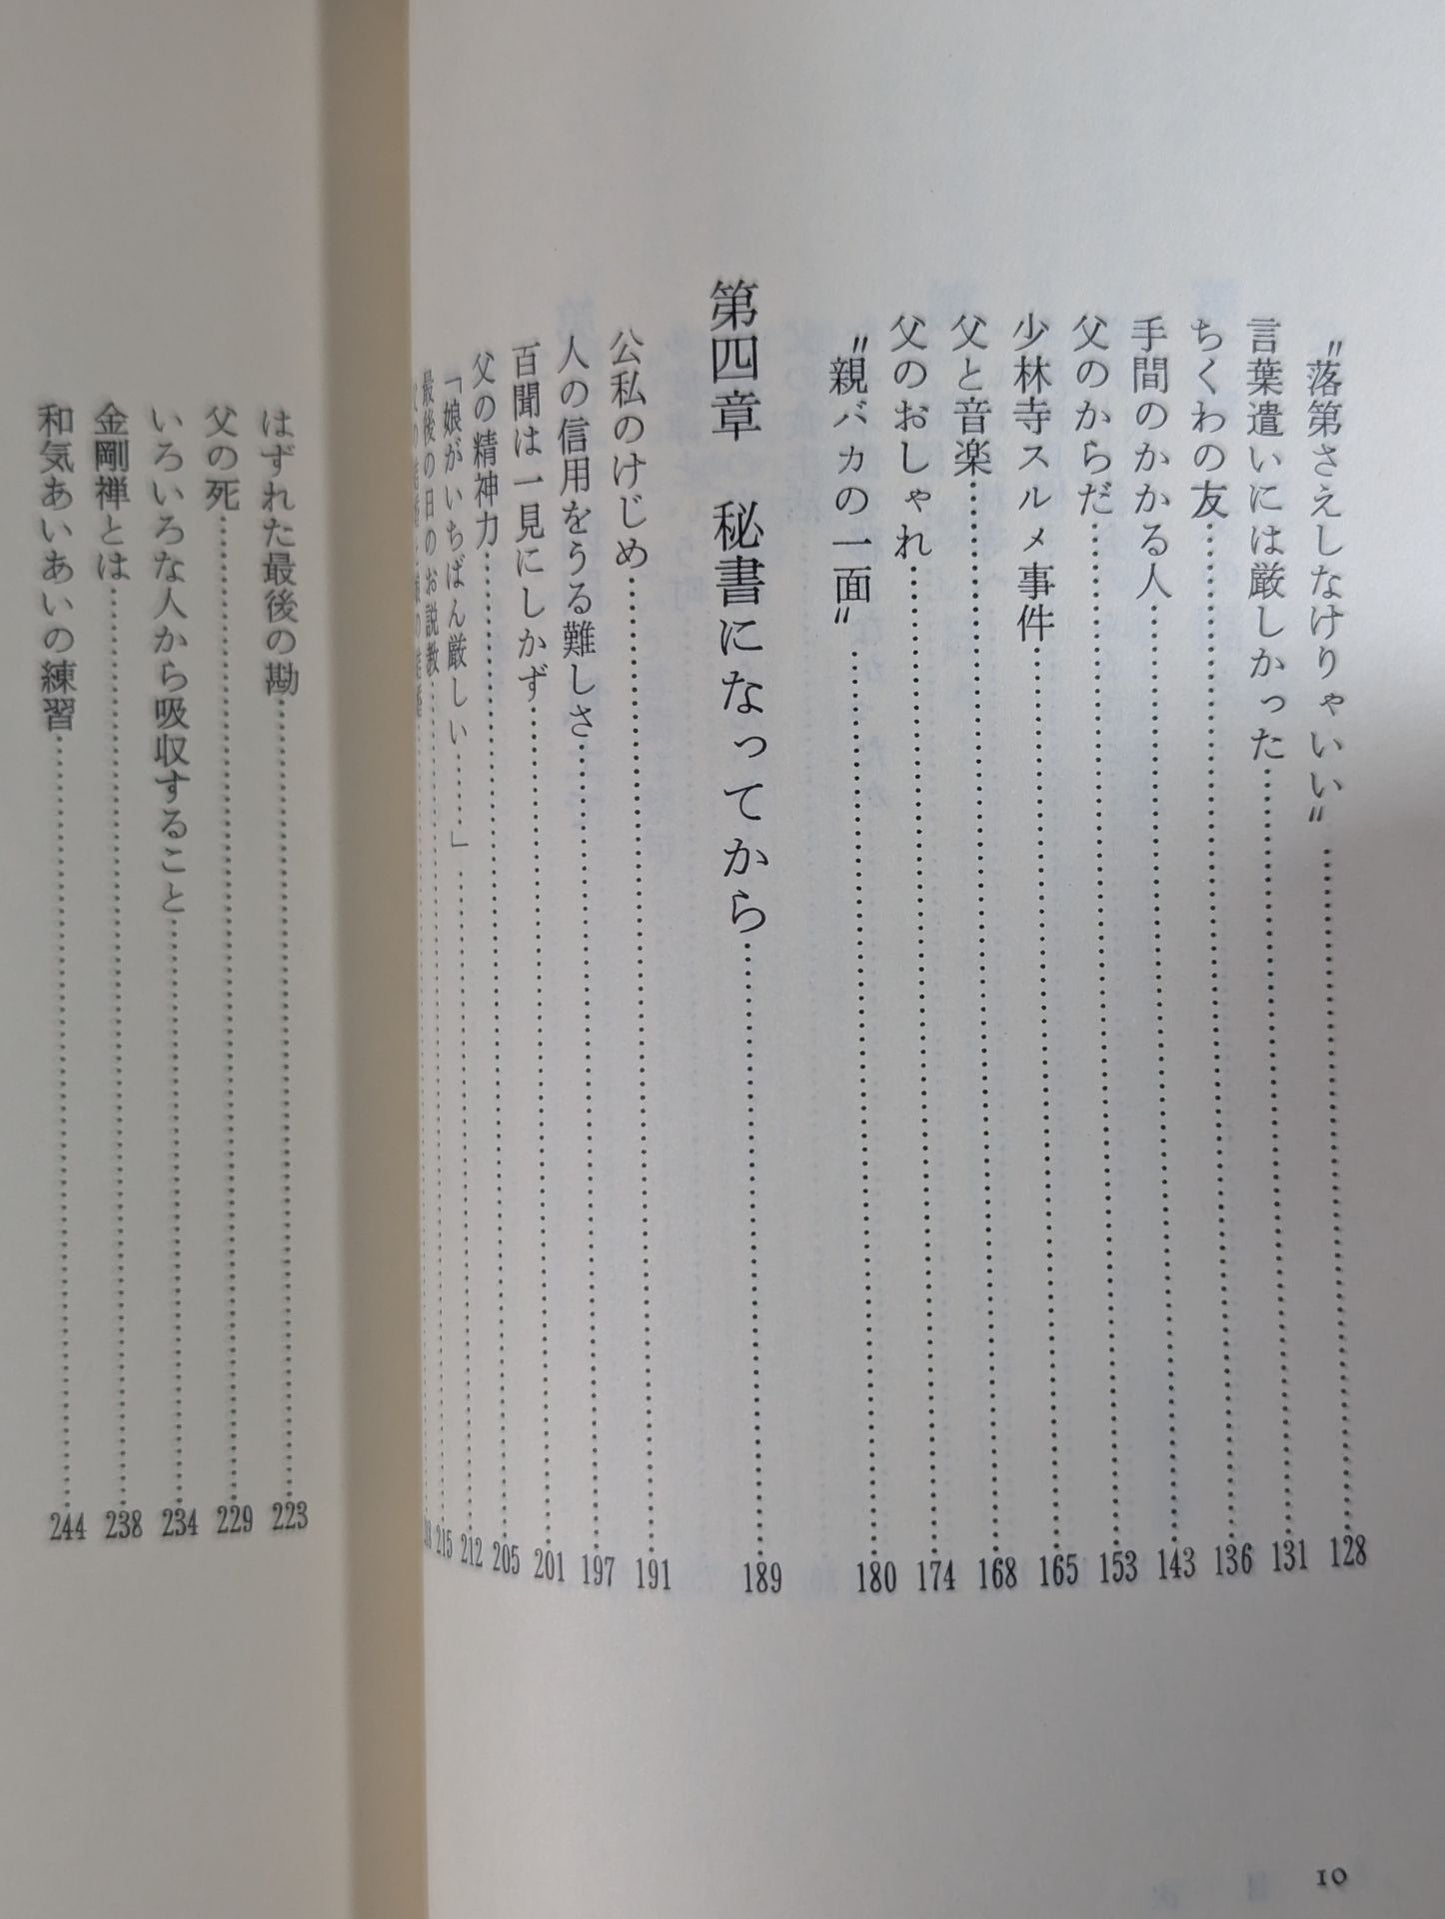 〝落第さえしなけりゃいい〟……128
言葉遣いには厳しかった……131
ちくわの友……136
手間のかかる人……143
父のからだ……153
少林寺スルメ事件……165
父と音楽……168
父のおしゃれ……174
〝親バカの一面〟……180
第四章　秘書になってから……189
公私のけじめ……191
人の信用をうる難しさ……197
百聞は一見にしかず……201
父の精神力……205
「娘がいちばん厳しい……」……212
最後の日のお説教……215
はずれた最後の勘……223
父の死……229
いろいろな人から吸収すること……234
金剛禅とは……238
和気あいあいの練習……244
10